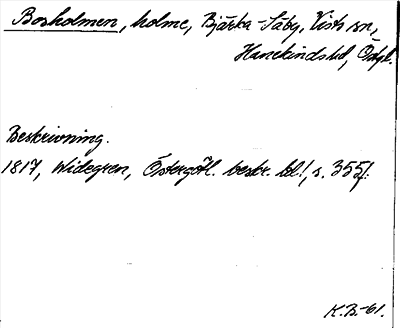 Bosholmen, holme, Bjärka-Säby, Vists sn,
Hanekinds hd, Östgl.
Beskrivning.
1817, Widegren, Östergötl. beskr. bl!, s. 355f.
K.B.-61.